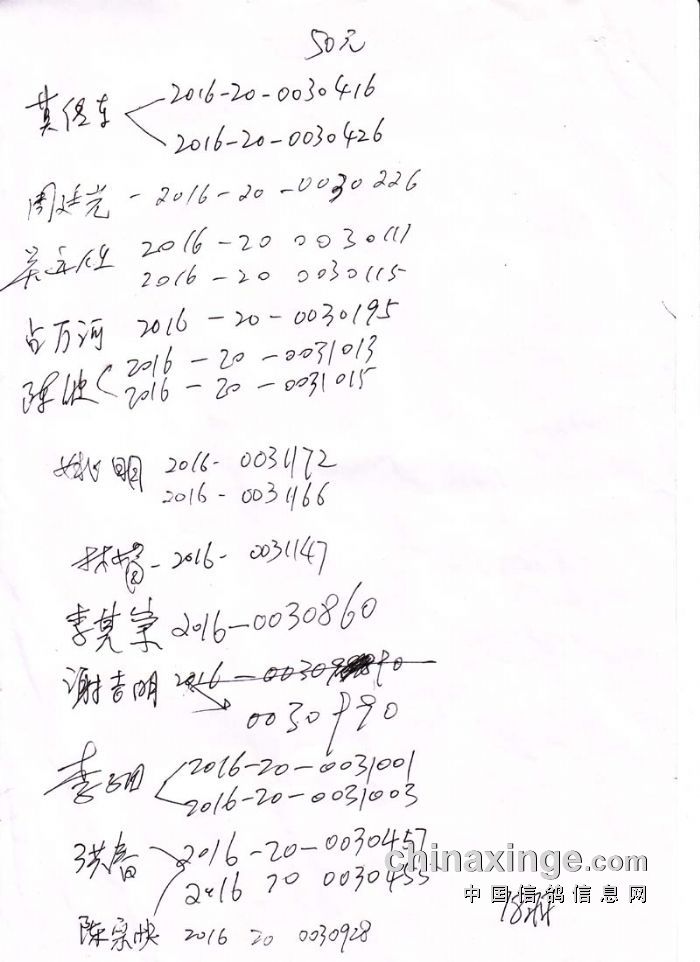 50元
2016-20-0030416
2016-20-0030426
周廷光 - 2016-20-0030226
2016-20 0030111
2016-20 0030115
占万河 2016-20-0030195
陈 2016-20-0031013
2016-20-0031015
姚明 2016-0031172
2016-0031166
林 - 2016-0031147
李其 2016-0030860
谢吉明 2016-0030 90
0030990
李 2016-20-0031001
2016-20-0031003
洪春 2016-20-0030457
2016 20 0030455
陈宗 2016 20 0030928
chinaxinge.com
中国信鸽信息网